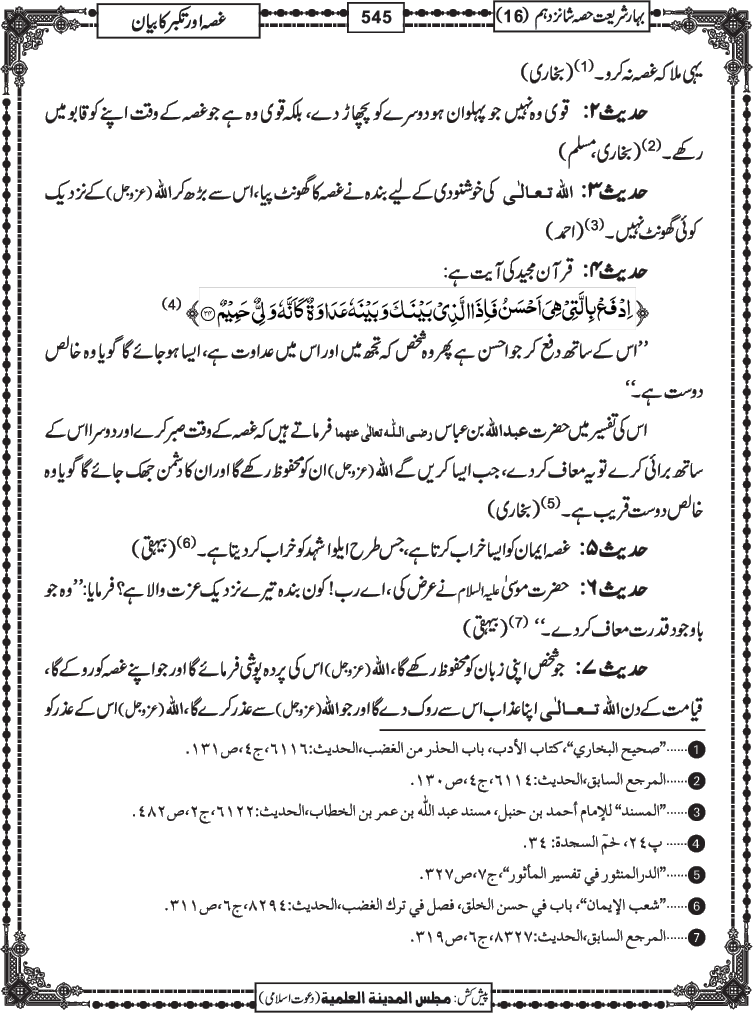 بہارِ شریعت حصہ شانزدہم (16)
545
غصہ اور تکبر کا بیان
یہی ملا کہ غصہ نہ کرو۔ (1) (بخاری)
حدیث ۲: قوی وہ نہیں جو پہلوان ہو دوسرے کو پچھاڑ دے، بلکہ قوی وہ ہے جو غصہ کے وقت اپنے کو قابو میں
رکھے۔ (2) (بخاری، مسلم)
حدیث ۳: اللہ تعالٰی کی خوشنودی کے لیے بندہ نے غصہ کا گھونٹ پیا، اس سے بڑھ کر اللہ (عزوجل) کے نزدیک
کوئی گھونٹ نہیں۔ (3) (احمد)
حدیث ۴: قرآن مجید کی آیت ہے:
﴿اِدْفَعْ بِالَّتِیْ هِیَ اَحْسَنُ فَاِذَا الَّذِیْ بَیْنَكَ وَ بَیْنَهٗ عَدَاوَةٌ كَاَنَّهٗ وَلِیٌّ حَمِیْمٌ ﴿۳۴﴾﴾ (4)
’’اس کے ساتھ دفع کر جو احسن ہے پھر وہ شخص کہ تجھ میں اور اس میں عداوت ہے، ایسا ہوجائے گا گویا وہ خالص
دوست ہے۔‘‘
اس کی تفسیر میں حضرت عبداللہ بن عباس رضی اللہ تعالٰی عنھما فرماتے ہیں کہ غصہ کے وقت صبر کرے اور دوسرا اس کے
ساتھ برائی کرے تو یہ معاف کردے، جب ایسا کریں گے اللہ (عزوجل) ان کو محفوظ رکھے گا اور ان کا دشمن جھک جائے گا گویا وہ
خالص دوست قریب ہے۔ (5) (بخاری)
حدیث ۵: غصہ ایمان کو ایسا خراب کرتا ہے، جس طرح ایلوا شہد کو خراب کردیتا ہے۔ (6) (بیہقی)
حدیث ۶: حضرت موسیٰ علیہ السلام نے عرض کی، اے رب! کون بندہ تیرے نزدیک عزت والا ہے؟ فرمایا: ’’وہ جو
باوجود قدرت معاف کردے۔‘‘ (7) (بیہقی)
حدیث ۷: جو شخص اپنی زبان کو محفوظ رکھے گا، اللہ (عزوجل) اس کی پردہ پوشی فرمائے گا اور جو اپنے غصہ کو روکے گا،
قیامت کے دن اللہ تعالٰی اپنا عذاب اس سے روک دے گا اور جو اللہ (عزوجل) سے عذر کرے گا، اللہ (عزوجل) اس کے عذر کو
1 ......”صحیح البخاري“، کتاب الأدب، باب الحذر من الغضب، الحدیث: ٦١١٦، ج٤، ص١٣١.
2 ......المرجع السابق، الحدیث: ٦١١٤، ج٤، ص١٣٠.
3 ......”المسند“ للإمام أحمد بن حنبل، مسند عبد اللّٰہ بن عمر بن الخطاب، الحدیث: ٦١٢٢، ج٢، ص٤٨٢.
4 ...... پ٢٤، حٰمٓ السجدة: ٣٤.
5 ......”الدرالمنثور في تفسیر المأثور“، ج٧، ص٣٢٧.
6 ......”شعب الإیمان“، باب في حسن الخلق، فصل في ترك الغضب، الحدیث: ٨٢٩٤، ج٦، ص٣١١.
7 ......المرجع السابق، الحدیث: ٨٣٢٧، ج٦، ص٣١٩.
پیش کش: مجلس المدینة العلمیة (دعوت اسلامی)